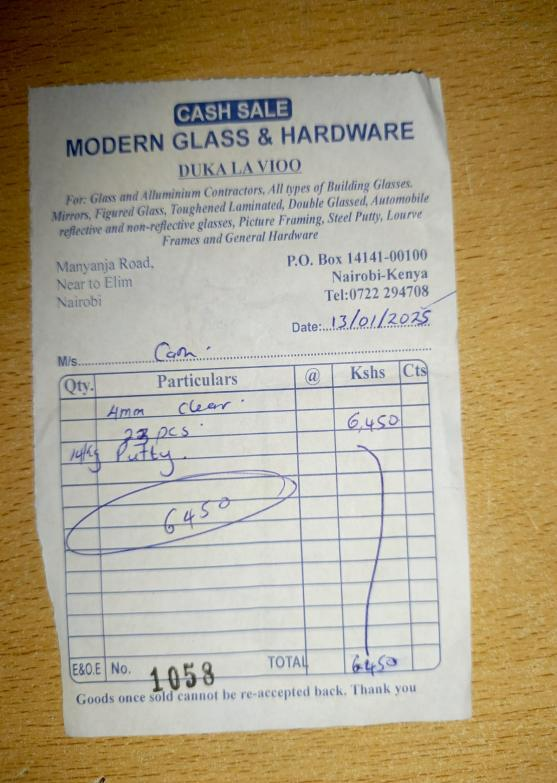 CASH SALE
MODERN GLASS & HARDWARE
DUKA LA VIOO
For: Glass and Alluminium Contractors, All types of Building Glasses.
Mirrors, Figured Glass, Toughened Laminated, Double Glassed, Automobile
reflective and non-reflective glasses, Picture Framing, Steel Putty, Lourve
Frames and General Hardware
Manyanja Road,
Near to Elim
Nairobi
P.O. Box 14141-00100
Nairobi-Kenya
Tel:0722 294708
Date:..13/01/2025
M/s. Cash.
Qty. Particulars @ Kshs Cts
4mm clear.
pcs. 6,450
Putty.
6450
E&O.E No. 1058 TOTAL 6450
Goods once sold cannot be re-accepted back. Thank you